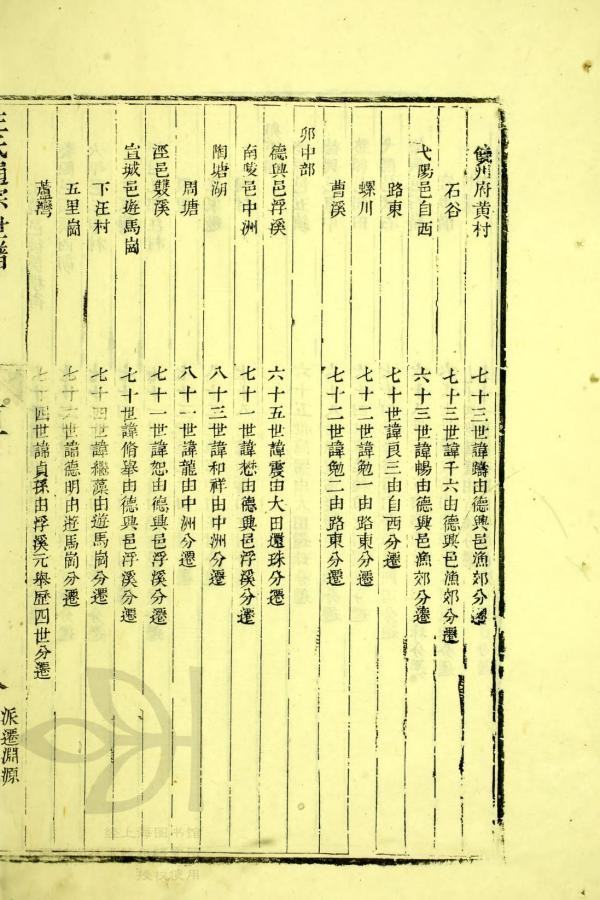 饒州府黄村 七十三世諱躋由德興邑漁郊分遷
石谷 七十三世諱千六由德興邑漁郊分遷
弋陽邑自西 六十三世諱暢由德興邑漁郊分遷
路東 七十世諱良三由自西分遷
螺川 七十二世諱勉一由路東分遷
曹溪 七十二世諱勉二由路東分遷
卯中部
德興邑浮溪 六十五世諱震由大田還珠分遷
南陵邑中洲 七十一世諱懋由德興邑浮溪分遷
陶塘湖 八十三世諱和祥由中洲分遷
周塘 八十一世諱龍由中洲分遷
涇邑雙溪 七十一世諱恕由德興邑浮溪分遷
宣城邑遊馬崗 七十世諱脩舉由德興邑浮溪分遷
下汪村 七十四世諱繼藻由遊馬崗分遷
五里崗 世諱德明由遊馬崗分遷
蘆灣 七十四世諱貞孫由浮溪元舉歷四世分遷
汪氏通宗世譜
派遷淵源
经上海图书馆
授权使用